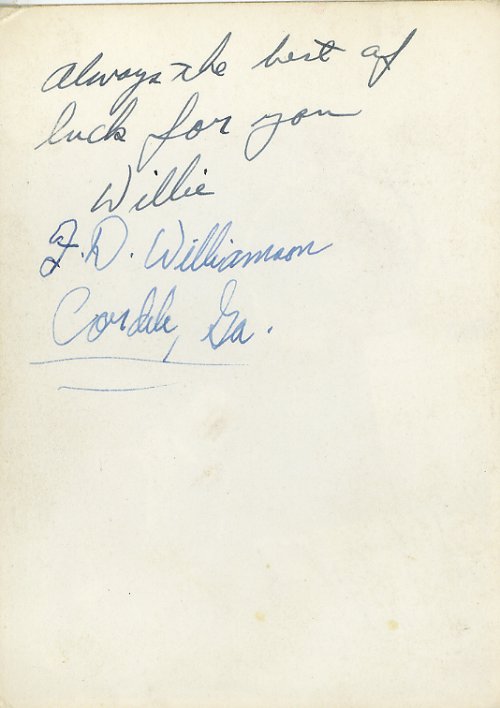 Always the best of
luck for you
Willie
F. D. Williamson
Cordele, Ga.